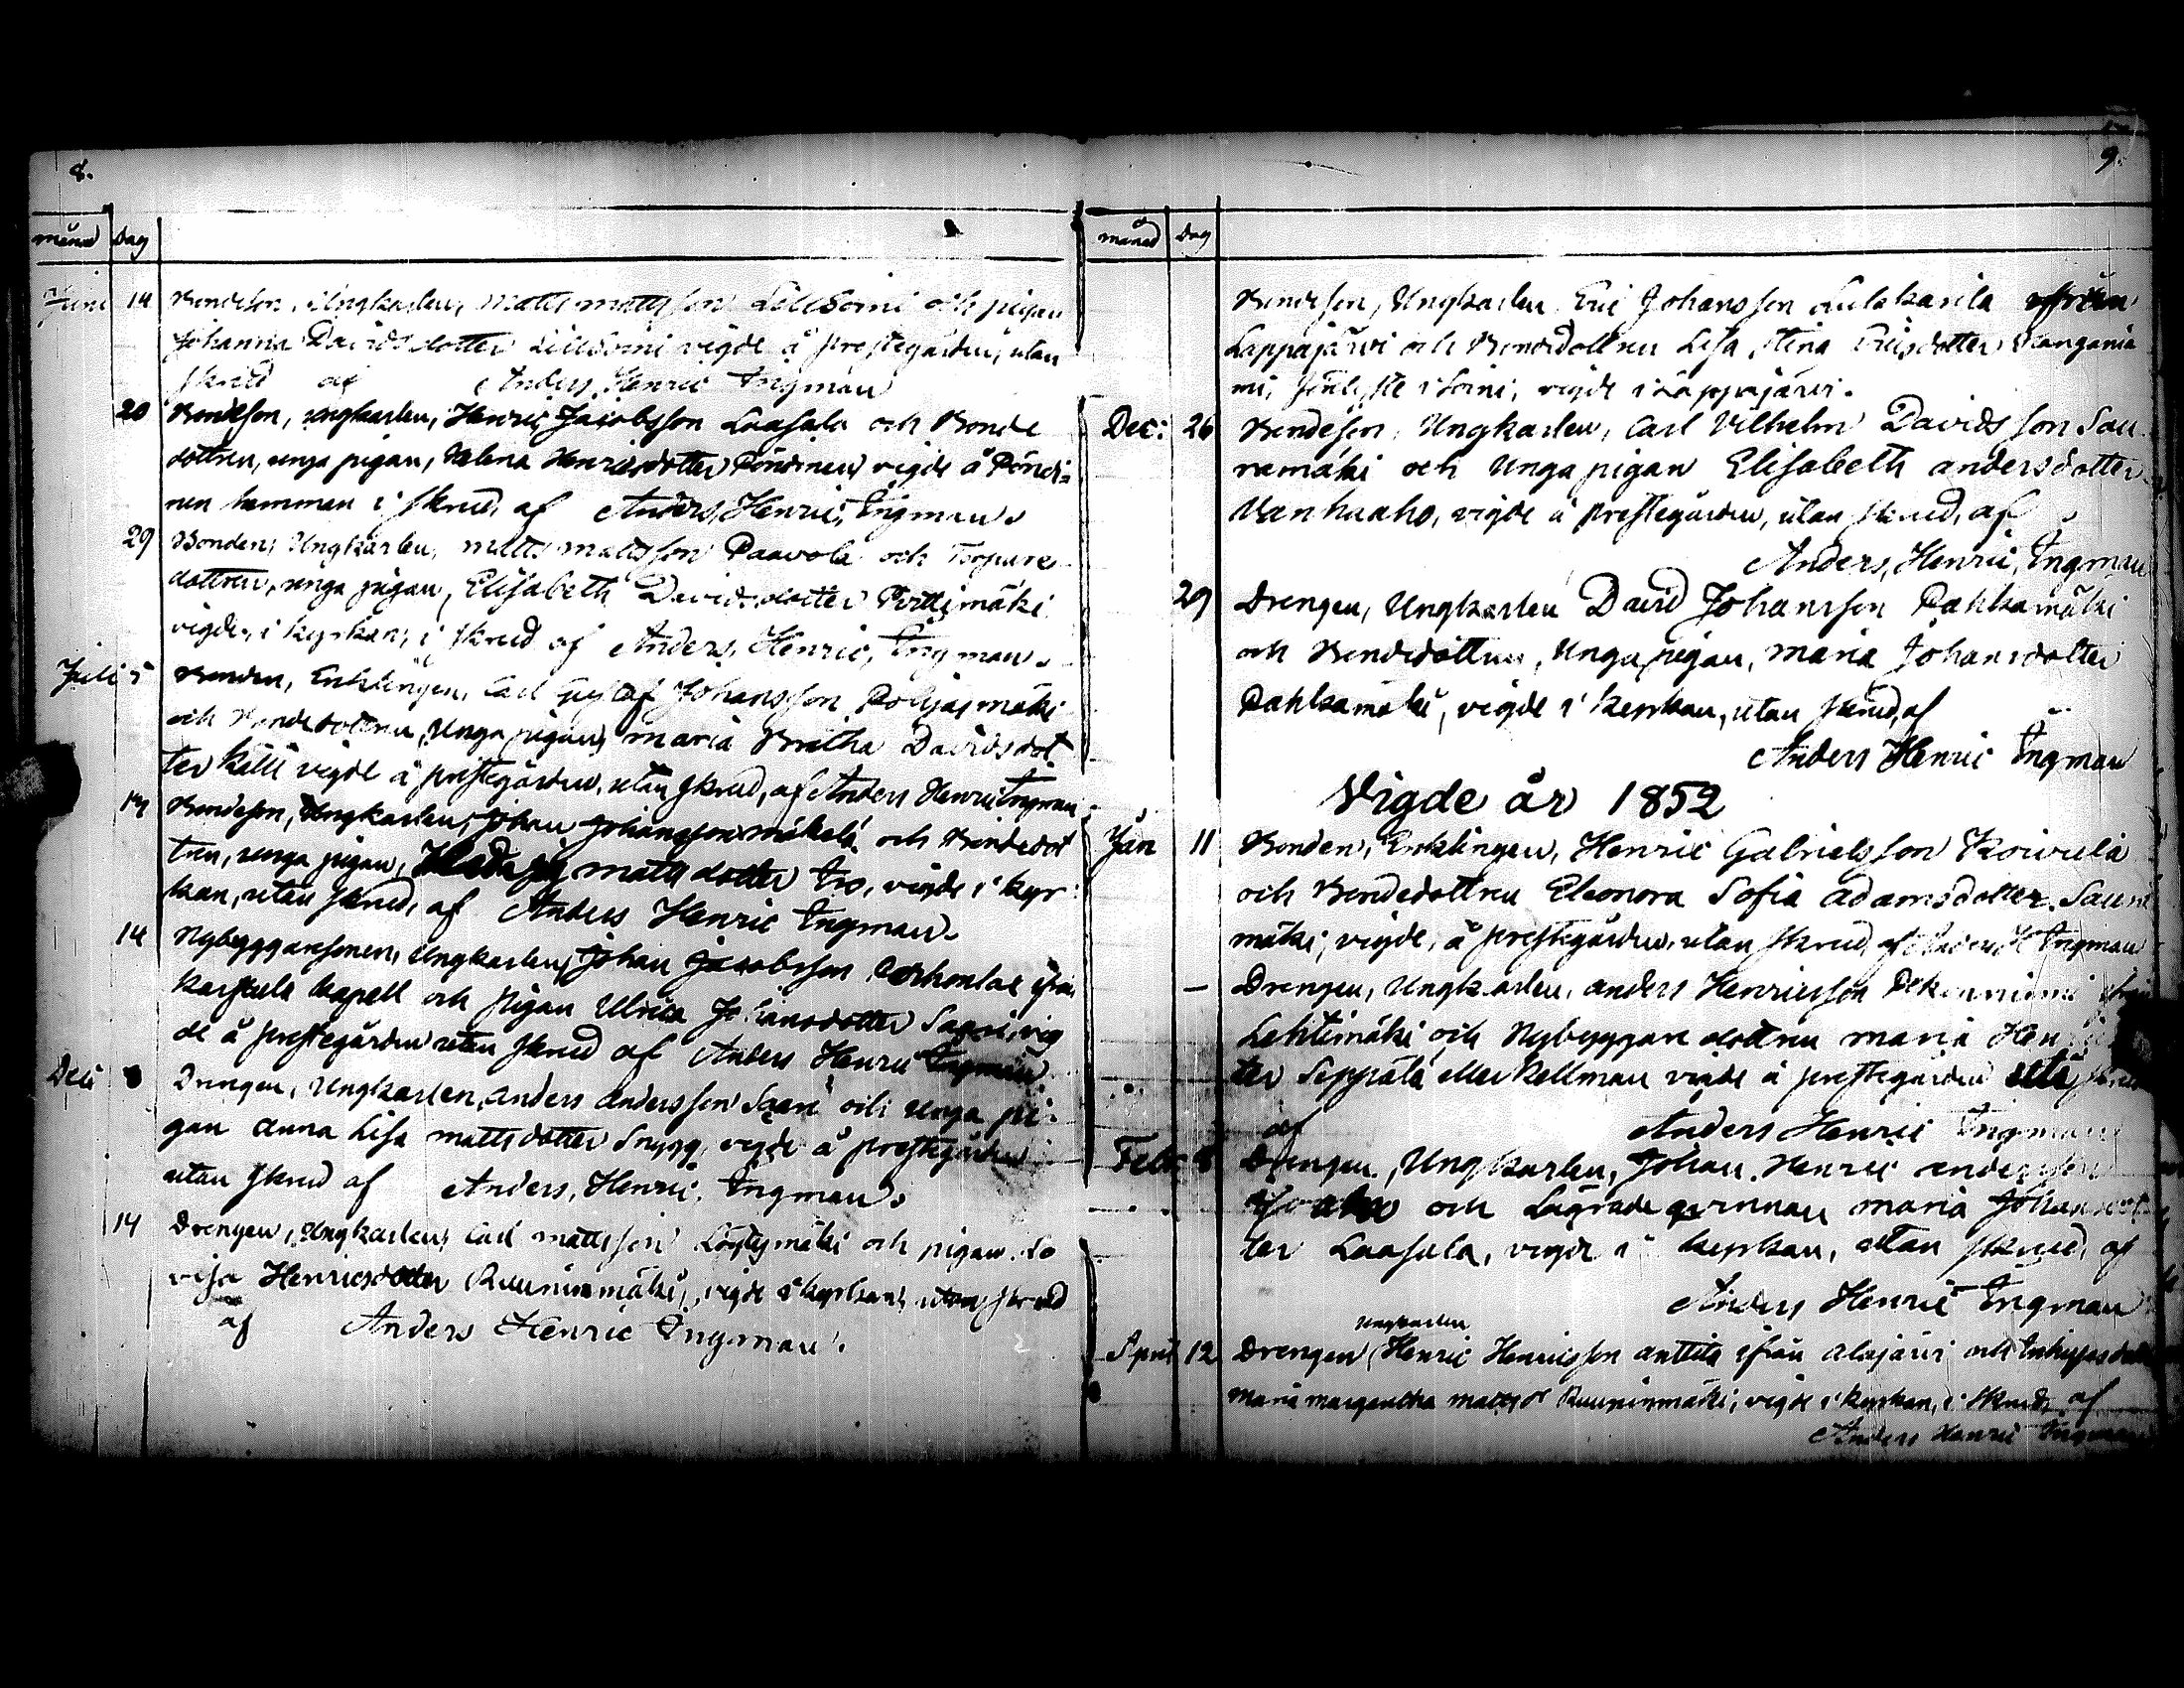 8.
månad Dag
Juni 14 Bondeson, Ungkarlen, Matts Mattsson Lillsoini och pigan
Johanna Davidsdotter Lillsoini vigde å prestegården, utan
skrud af Anders Henric Ingman
20 Bondeson, Ungkarlen, Henric Jacobsson Laasala och Bonde
dottren, unga pigan, Helena Henricsdotter Pöndinen vigde å Pöndi=
nen hemman i skrud, af Anders, Henric, Ingman.
29 Bonden, Ungkarlen, Matts Mattsson Paavola och Torpare
dottren, unga pigan, Elisabeth Davidsdotter Perttimäki
vigde, i kyrkan, i skrud af Anders, Henric, Ingman.
Juli 5 Bonden, Enklingen, Carl Gustaf Johansson Pohjasmäki
och Bondedottren, Unga pigan, Maria Bretha Davidsdot
ter Killi vigde å prestegården, utan skrud, af Anders Henric Ingman
Bondeson, Ungkarlen, Johan Johansson Mäkelä och Bondedot
tren, unga pigan, Mattsdotter Iso, vigde i kyr
kan, utan skrud, af Anders Henric Ingman.
14 Nybyggaresonen, Ungkarlen, Johan Jacobsson ifrån
Karstula kapell och pigan Ulrica Johansdotter vig
de å prestegården utan skrud af Anders Henric Ingman
Dec 8 Drengen, Ungkarlen, Anders Andersson Skari och Unga pi=
gan Anna Lisa Mattsdotter Snygg, vigde å prestegården
utan skrud af Anders, Henric, Ingman.
14 Drengen, Ungkarlen, Carl Mattsson Löytymäki och pigan Lo
visa Henricsdotter Ruuninmäki, vigde i kyrkan, utan skrud
af Anders Henric Ingman.
9.
månad Dag
Bondeson, Ungkarlen Eric Johansson Lulakarila ifrån
Lappajärvi och Bondedottren Lisa Stina Ericsdotter Kangasnie
mi, i Soini, vigde i Lappajärvi.
Dec: 26 Bondeson, Ungkarlen, Carl Vilhelm Davidsson Sau
namäki och Unga pigan Elisabeth Andersdotter
Vanhaaho, vigde å prestegården, utan skrud, af
Anders, Henric, Ingman
29 Drengen, Ungkarlen David Johansson Pahkamäki
och Bondedottren, Unga pigan, Maria Johansdotter
Pahkamäki, vigde i kyrkan, utan skrud, af
Anders Henric Ingman
Vigde år 1852
Jan 11 Bonden, Enklingen, Henric Gabrielsson Koivula
och Bondedottren Eleonora Sofia Adamsdotter Sauna
mäki, vigde, å prestegården, utan skrud, af Anders H Ingman
– Drengen, Ungkarlen, Anders Henricsson ifrån
Lehtimäki och Nybyggare dottren Maria Hen
ter Seppälä eller Kellman vigde å prestegården utan skrud
af Anders Henric Ingman
Feb: 8 Drengen, Ungkarlen, Johan Henric Andersson
Joaho och Lägrade qvinnan Maria Johansdot
ter Laasala, vigde i kyrkan, utan skrud, af
Anders Henric Ingman
Ungkarlen
April 12 Drengen, Henric Henricsson Anttila ifrån Alajärvi och
Maria Margaretha Mattsdr Ruuninmäki, vigde i kyrkan, i skrud, af
Anders Henric Ingman